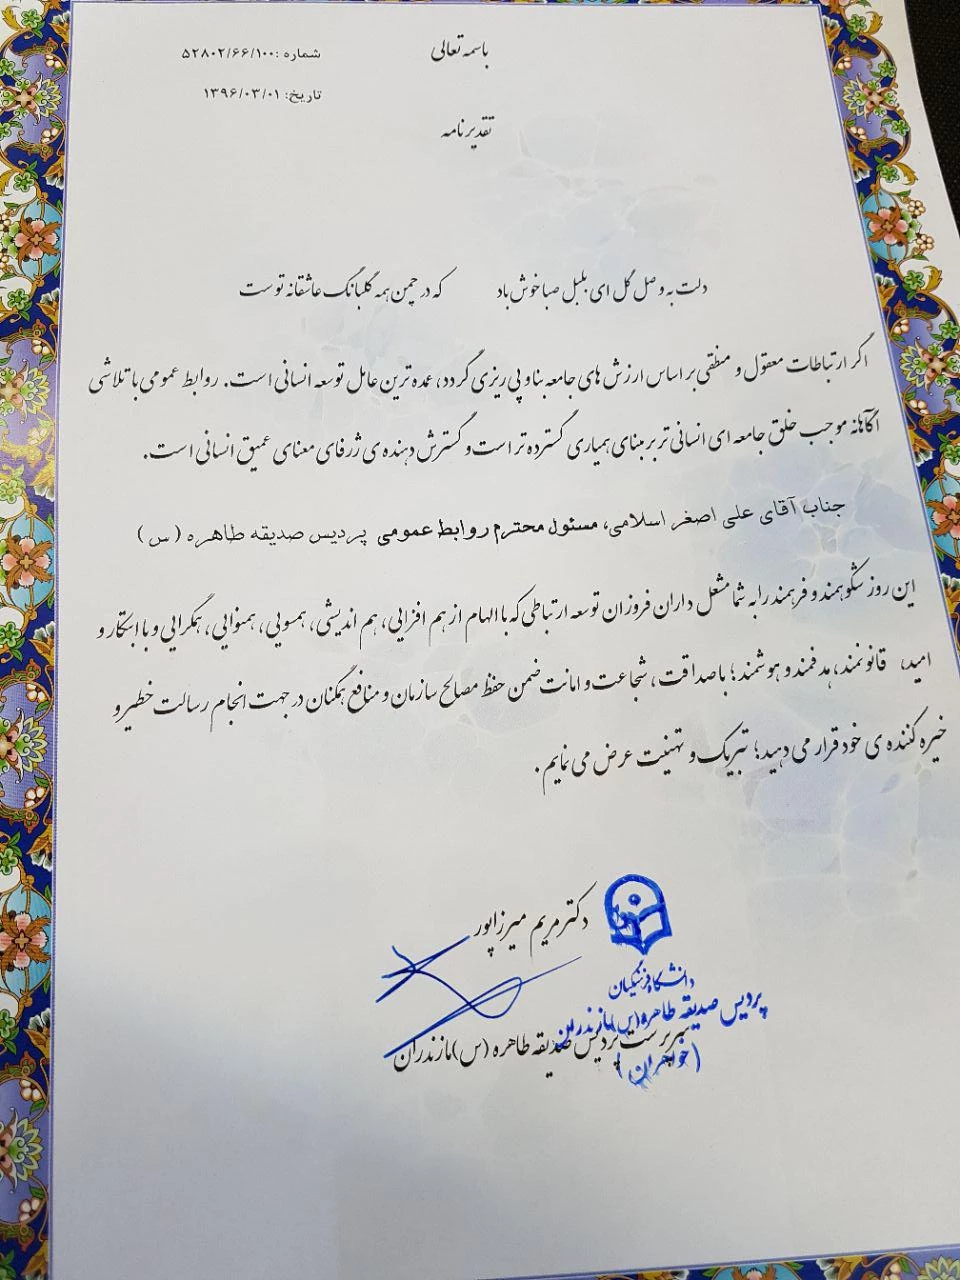 باسمه تعالی
شماره :۵۲۸۰۲/۶۶/۱۰۰
تاریخ: ۱۳۹۶/۰۳/۰۱
تقدیرنامه
دلت به وصل گل ای بلبل صبا خوش باد که در چمن همه گلبانگ عاشقانه توست
اگر ارتباطات معقول و منطقی بر اساس ارزش های جامعه بنا و پی ریزی گردد، عمده ترین عامل توسعه انسانی است. روابط عمومی با تلاشی
آگاهانه موجب خلق جامعه ای انسانی تر بر مبنای همیاری گسترده تر است و گسترش دهنده ی ژرفای معنای عمیق انسانی است.
جناب آقای علی اصغر اسلامی، مسئول محترم روابط عمومی پردیس صدیقه طاهره (س)
این روز شکوهمند و فرهمند را به شما مشعل داران فروزان توسعه ارتباطی که با الهام از هم افزایی، هم اندیشی، همسویی، همنوایی، همگرایی و با ابتکار و
امید، قانونمند، هدفمند و هوشمند؛ با صداقت، شجاعت و امانت ضمن حفظ مصالح سازمان و منافع همگنان در جهت انجام رسالت خطیر و
خیره کننده ی خود قرار می دهید؛ تبریک و تهنیت عرض می نمایم.
دکتر مریم میرزاپور
دانشگاه فرهنگیان
پردیس صدیقه طاهره (س) مازندران
سرپرست پردیس صدیقه طاهره (س) مازندران
(خواهران)